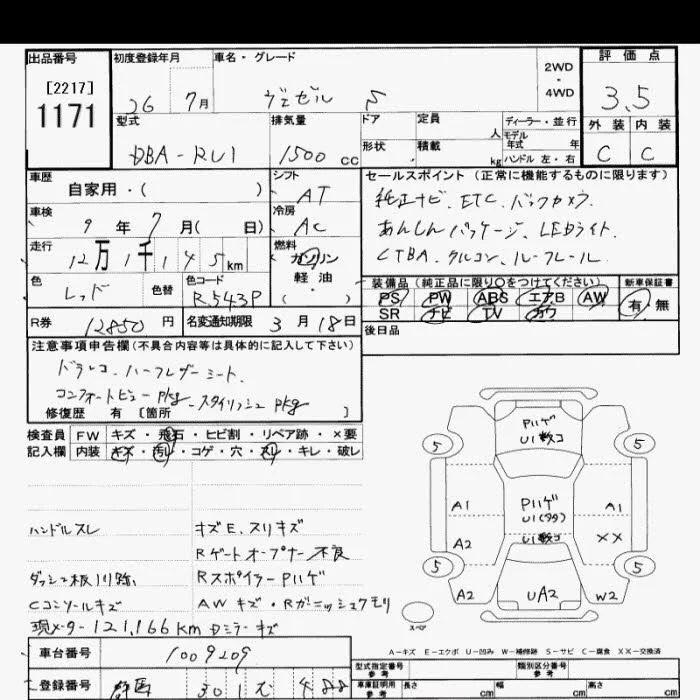 出品番号
[2217]
1171
初度登録年月
26 7月
車名・グレード
ヴェゼル S
2WD
・
4WD
評価点
3.5
型式
DBA-RU1
排気量
1500 cc
ドア
定員
人
ディーラー・並行
モデル
年式 年
形状
積載
kg
ハンドル 左・右
外装 内装
C C
車歴
自家用・( )
シフト
AT
車検
9年 7月( 日)
冷房
AC
走行
12万1千145km
燃料
ガソリン
軽油
( )
色
レッド
色替
色コード
R543P
R券 12850円
名変通知期限 3月18日
セールスポイント(正常に機能するものに限ります)
純正ナビ、ETC、バックカメラ、
あんしんパッケージ、LEDライト
CTBA、クルコン、ルーフレール
装備品(純正品に限り○をつけてください)
新車保証書
PS PW ABS エアB AW
有・無
SR ナビ TV カワ
後日品
注意事項申告欄(不具合内容等は具体的に記入して下さい)
ドラレコ、ハーフレザーシート、
コンフォートビューPkg、スタイリッシュPkg
修復歴 有 [箇所 ]
検査員 FW キズ・飛石・ヒビ割・リペア跡・×要
記入欄 内装 キズ・汚れ・コゲ・穴・スレ・キレ・破レ
ハンドルスレ
キズE、スリキズ
Rゲートオープナー不良
ダッシュ板ハリ跡、
RスポイラーPハゲ
Cコンソールキズ
AWキズ・Rガーニッシュクモリ
現メーター121,166km Dミラーキズ
Pハゲ
U1数コ
5 5
A1
Pハゲ
U1(タタ)
A1
A2
U1数コ
××
5 5
A2
UA2
W2
スペア
A-キズ E-エクボ U-凹み W-補修跡 S-サビ C-腐食 ××-交換済
車台番号 1009209
登録番号 群馬 301 488
型式指定番号
参考
類別区分番号
参考
車庫証明用
参考
長さ cm
幅 cm
高さ cm